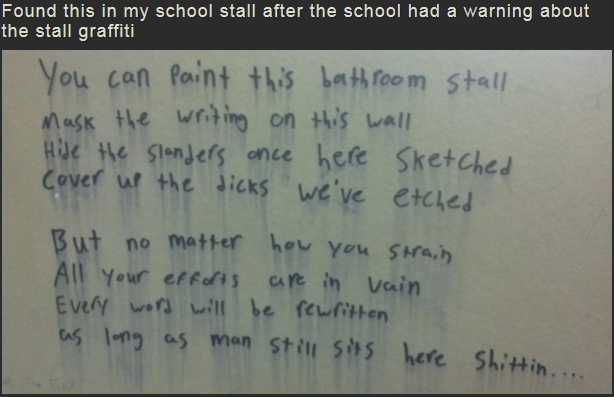 Found this in my school stall after the school had a warning about
the stall graffiti
You can paint this bathroom stall
Mask the writing on this wall
Hide the slanders once here sketched
Cover up the dicks we've etched
But no matter how you strain
All your efforts are in vain
Every word will be rewritten
as long as man still sits here shittin....